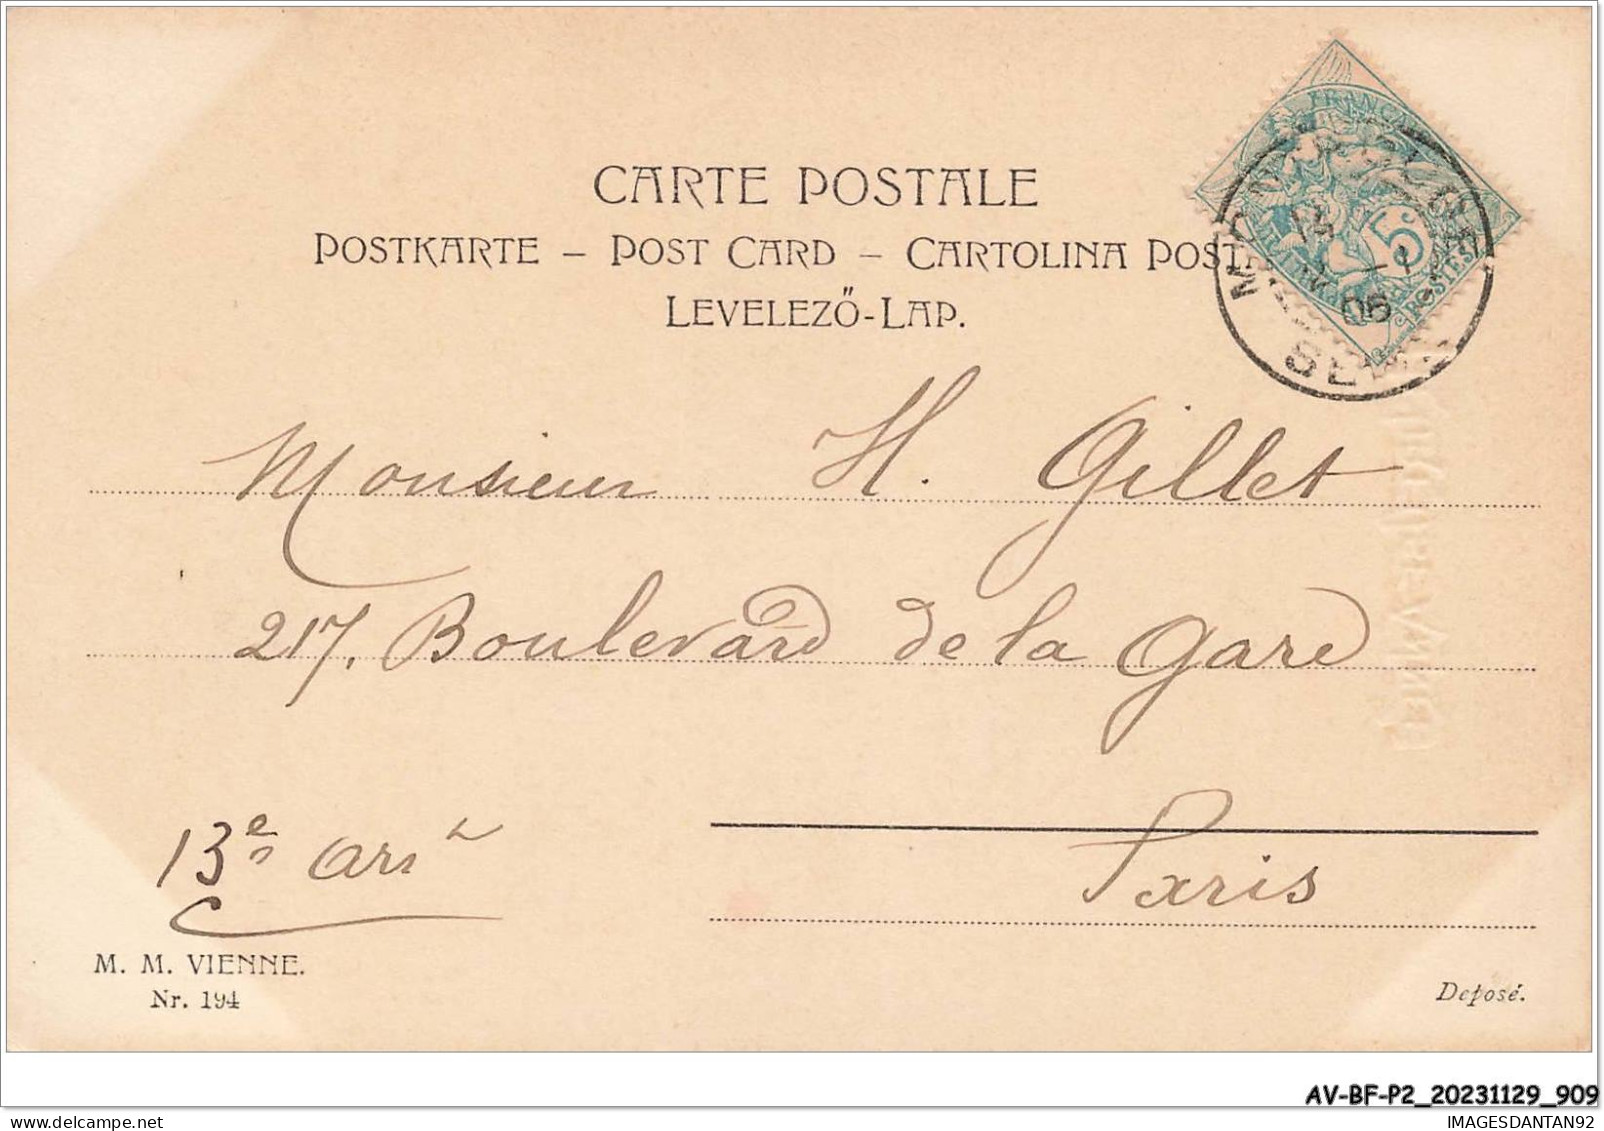 CARTE POSTALE
POSTKARTE – POST CARD – CARTOLINA POST
LEVELEZŐ-LAP.
FRANÇAI
5c
POSTES
06
Monsieur H. Gillet
217, Boulevard de la Gare
Paris
13e arrt
M. M. VIENNE.
Nr. 194
Deposé.
AV-BF-P2_20231129_909
IMAGESDANTAN92